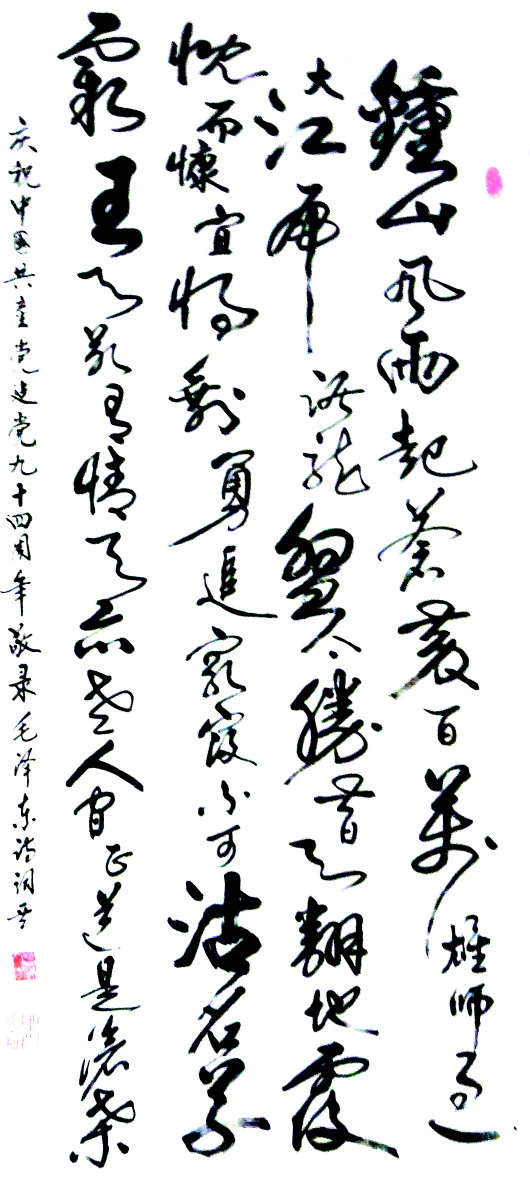 鍾山风雨起蒼黄百萬雄師過
大江虎踞龍盤今勝昔天翻地覆
慨而慷宜將剩勇追窮寇不可沽名学
霸王天若有情天亦老人间正道是滄桑
庆祝中國共產党建党九十四周年敬录毛泽东诗词